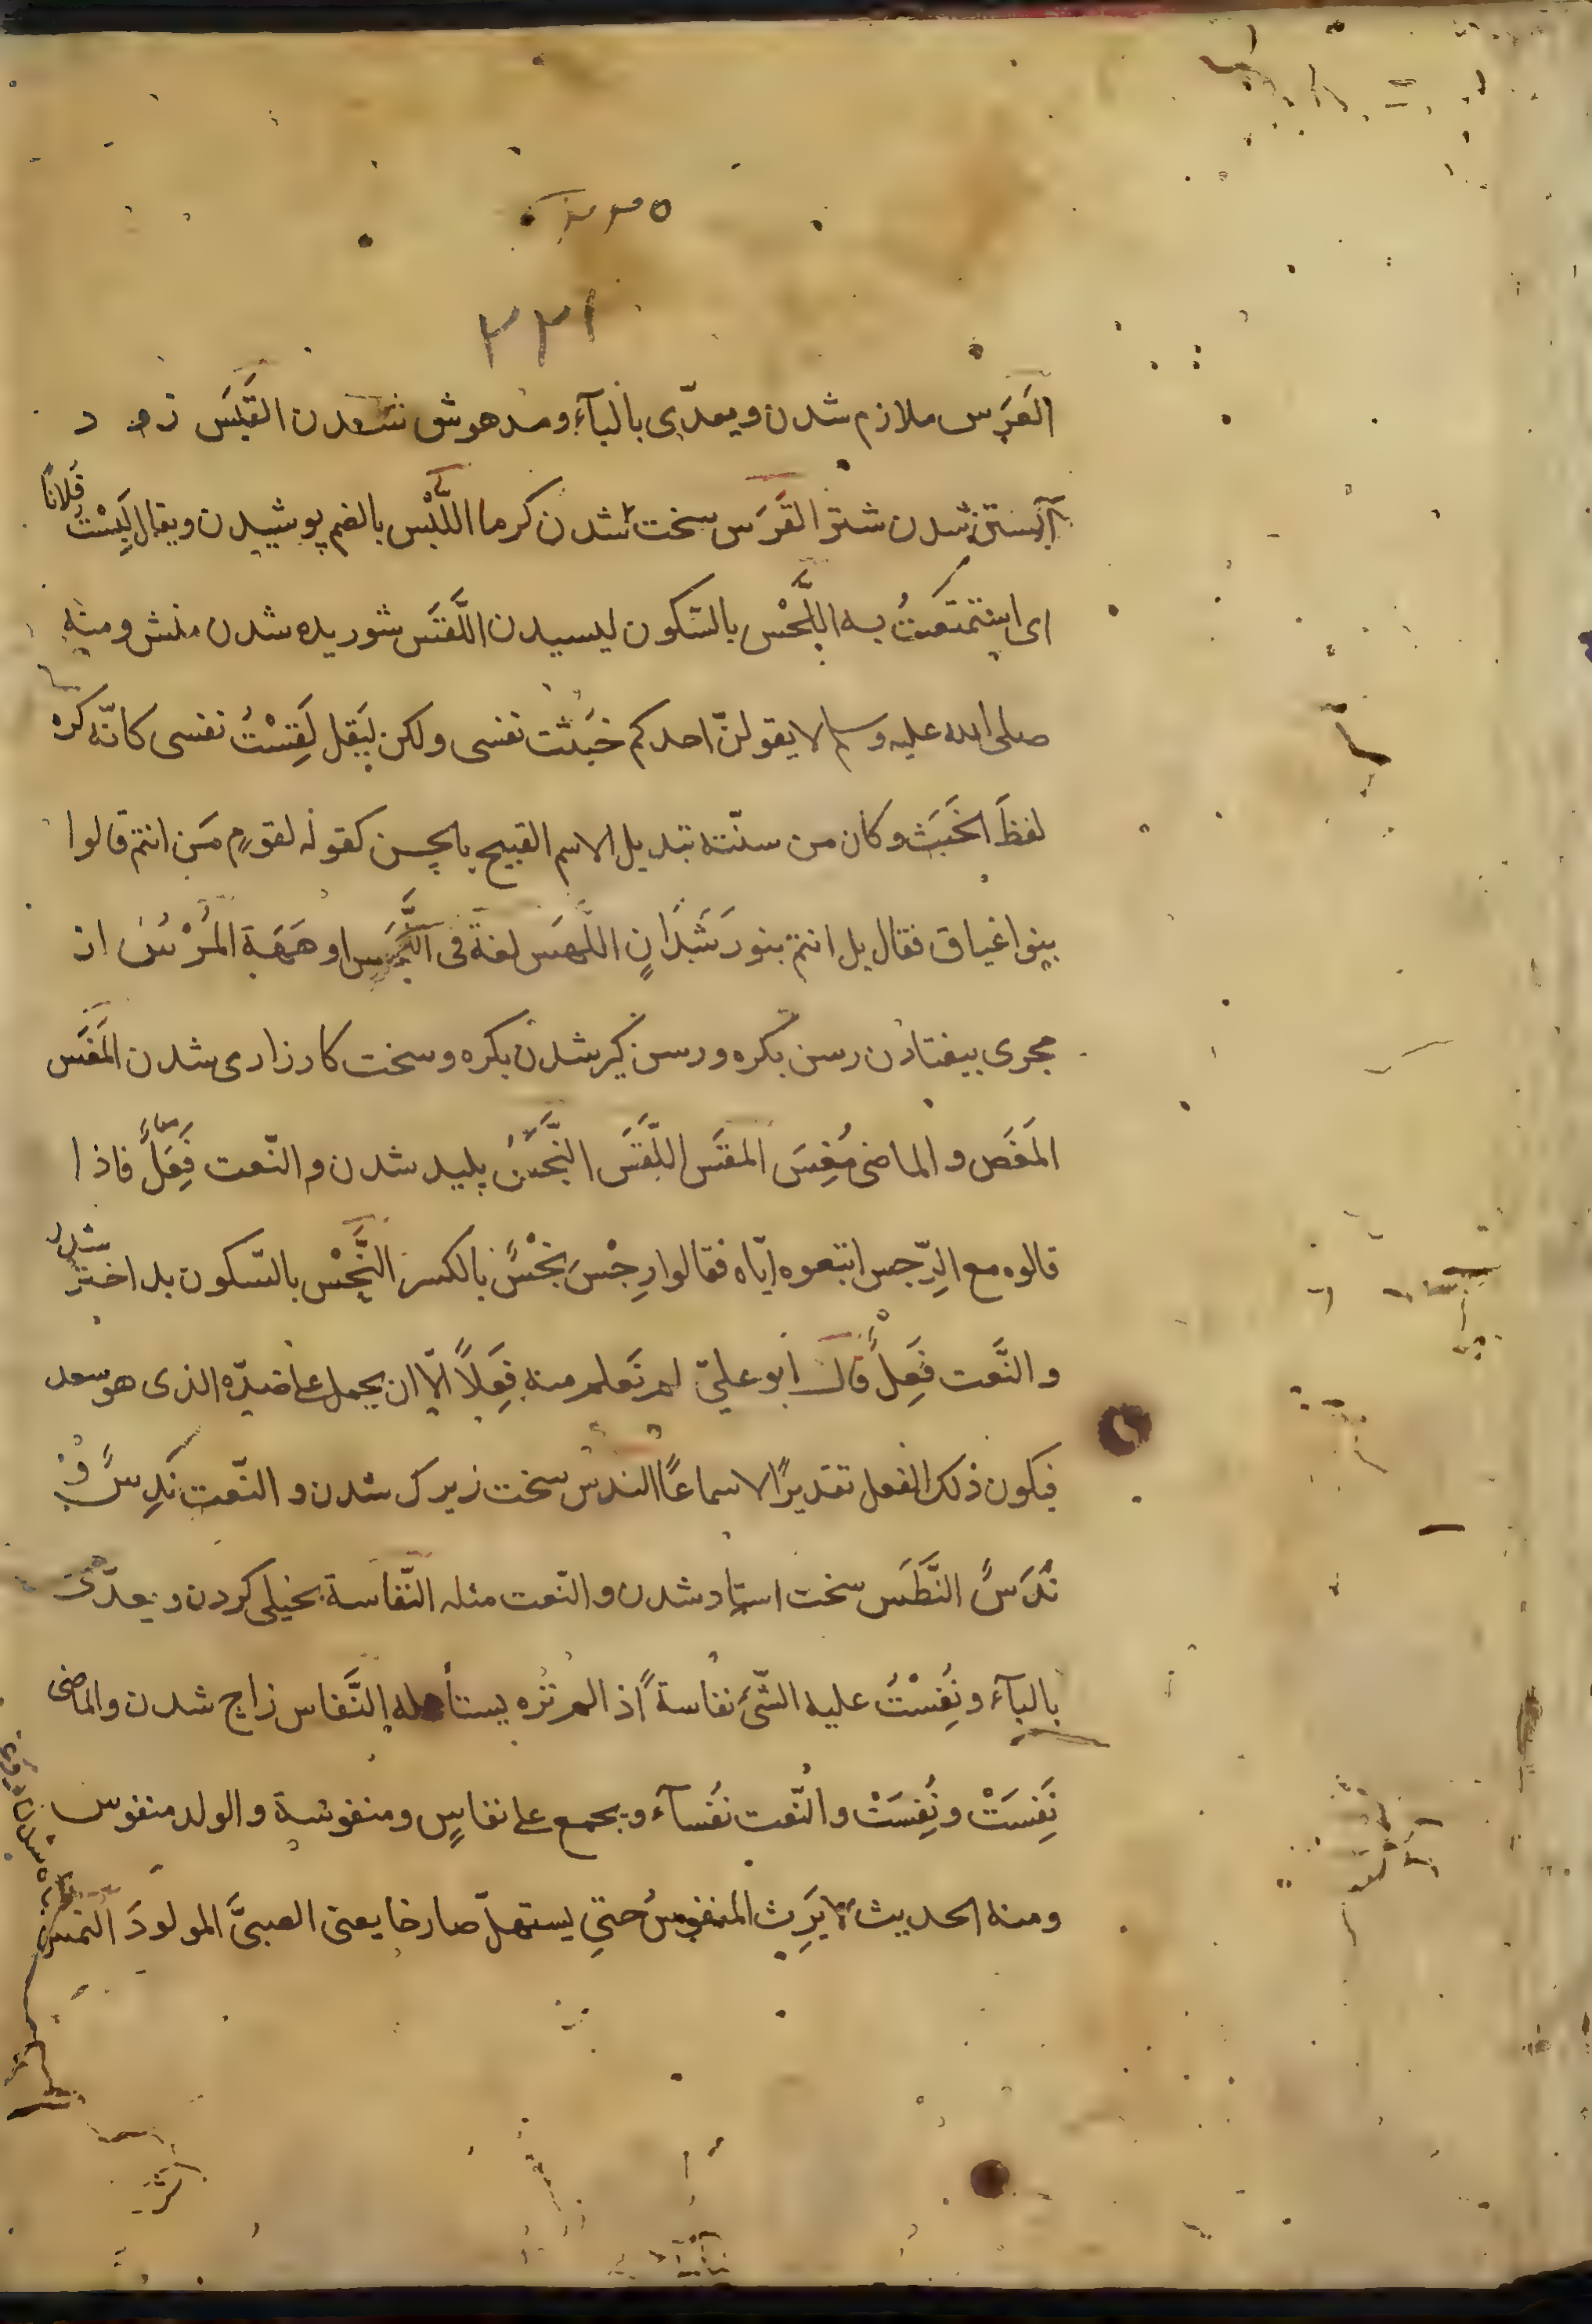 ۳۳۱
العَرَس ملازم شدن ويعدّى بالبآء ومدهوش شدن القَبَس زود
آبستن شدن شتر القَرَس سخت شدن كرما اللُّبْس بالضم پوشيدن ويقال لَبِسْتُ فلانًا
اى استمتعتُ به اللَّحْس بالسّكون ليسيدن اللَّقَس شوريده شدن منش ومنه
صلى الله عليه وسلم لا يقولنّ احدكم خَبُثت نفسى ولكن ليَقل لَقِسَتْ نفسى كانّه كره
لفظَ الخَبَث وكان من سنّته تبديل الاسم القبيح بالحسن كقوله لقومٍ مَن انتم قالوا
بنوا غياق فقال بل انتم بنو رَشَدَانٍ اللَّهَس لغة فى او هَهَة المَرَس از
مجرى بيفتادن رسن بكره ورسن كير شدن بكره وسخت كارزارى شدن المَغَس
المَغَص و الماضى مُغِسَ المقَس اللَّقَس النَّجَس پليد شدن و النّعت فَعِلٌ فاذا
قالوه مع الرّجس اتبعوه ايّاه فقالوا رِجْسٌ نِجْسٌ بالكسر النَّحْس بالسّكون بد اختر شدن
و النَّعت فَعِلٌ قال ابو علىّ لم نَعلم منه فَعِلًا الّا ان يحمل على ضدّه الذى هو سعد
فيكون ذلك الفعل تقديرًا لا سماعًا الندَس سخت زيرك شدن و النّعت نَدِسٌ و
نَدُسٌ النَّطَس سخت استاد شدن و النّعت مثله النَّفاسة بخيلى كردن و يعدّى
بالبآء و نَفِسْتُ عليه الشّىءَ نفاسةً اذا لم تره يستأهله النَّفاس زاج شدن والماضى
نَفِسَتْ و نُفِسَتْ والنَّعت نُفَسآء و يجمع على نفاسٍ ومنفوسة والولد منفوس
ومنه الحديث لا يَرِث المنفوسُ حتى يستهلّ صارخا يعنى الصبىَّ المولودَ النمَس